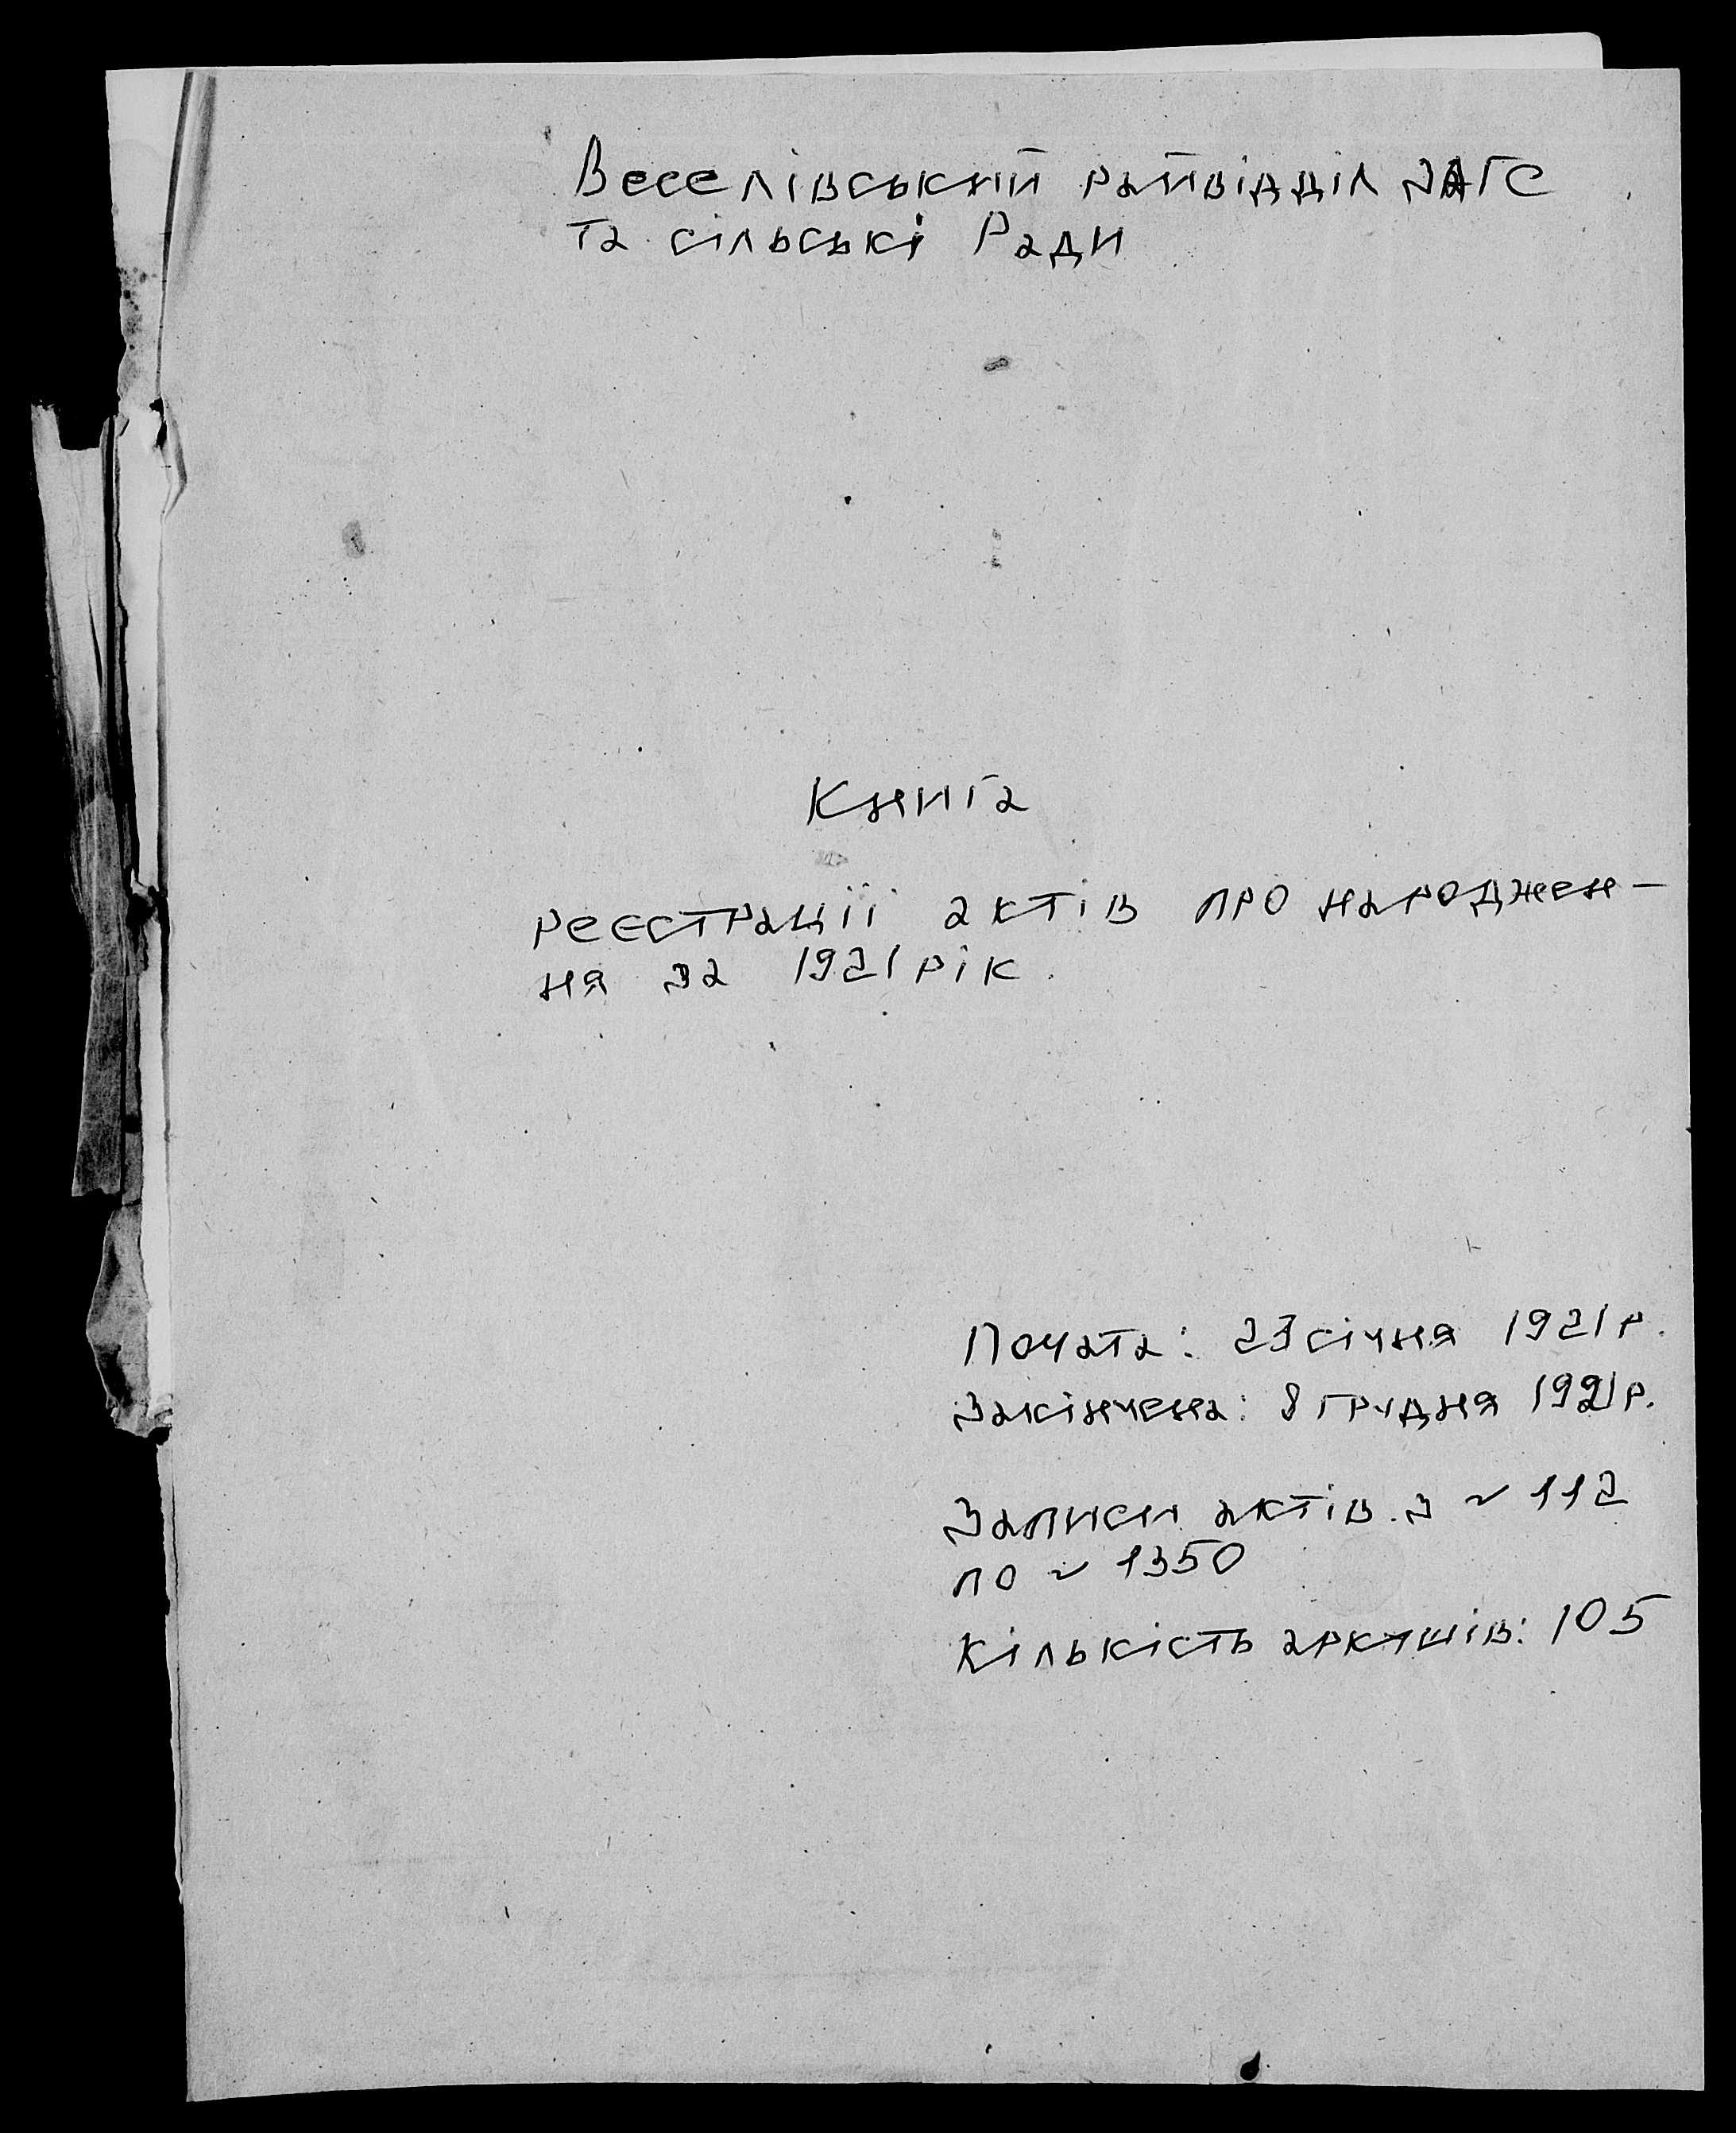 Веселівський райвідділ ЗАГС
та сільські Ради
Книга
реєстрації актів про народжен-
ня за 1921 рік.
Почата: 23 січня 1921 р.
Закінчена: 8 грудня 1921 р.
Записи актів з № 112
по № 1350
Кількість аркушів: 105